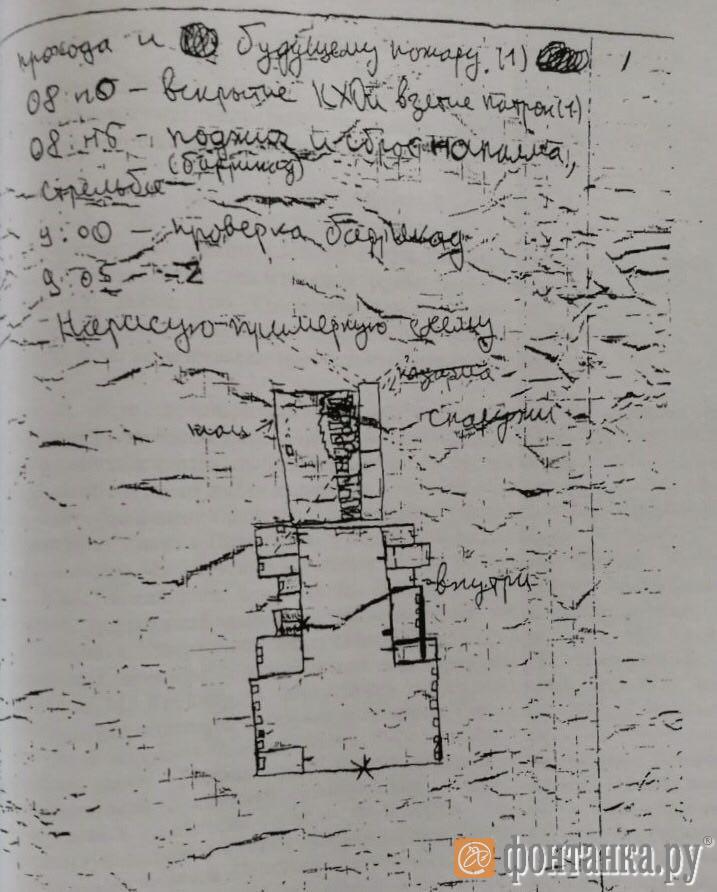 прохода и будущему пожару. (1)
08:40 – вскрытие КХО и взятие патрон (1)
08:45 – поджиг и сброс напалма,
(баррикад)
стрельба
9:00 – проверка баррикад
9:05 –
Нарисую примерную схему
казарма
плац
снаружи
внутри
фонтанка.ру®